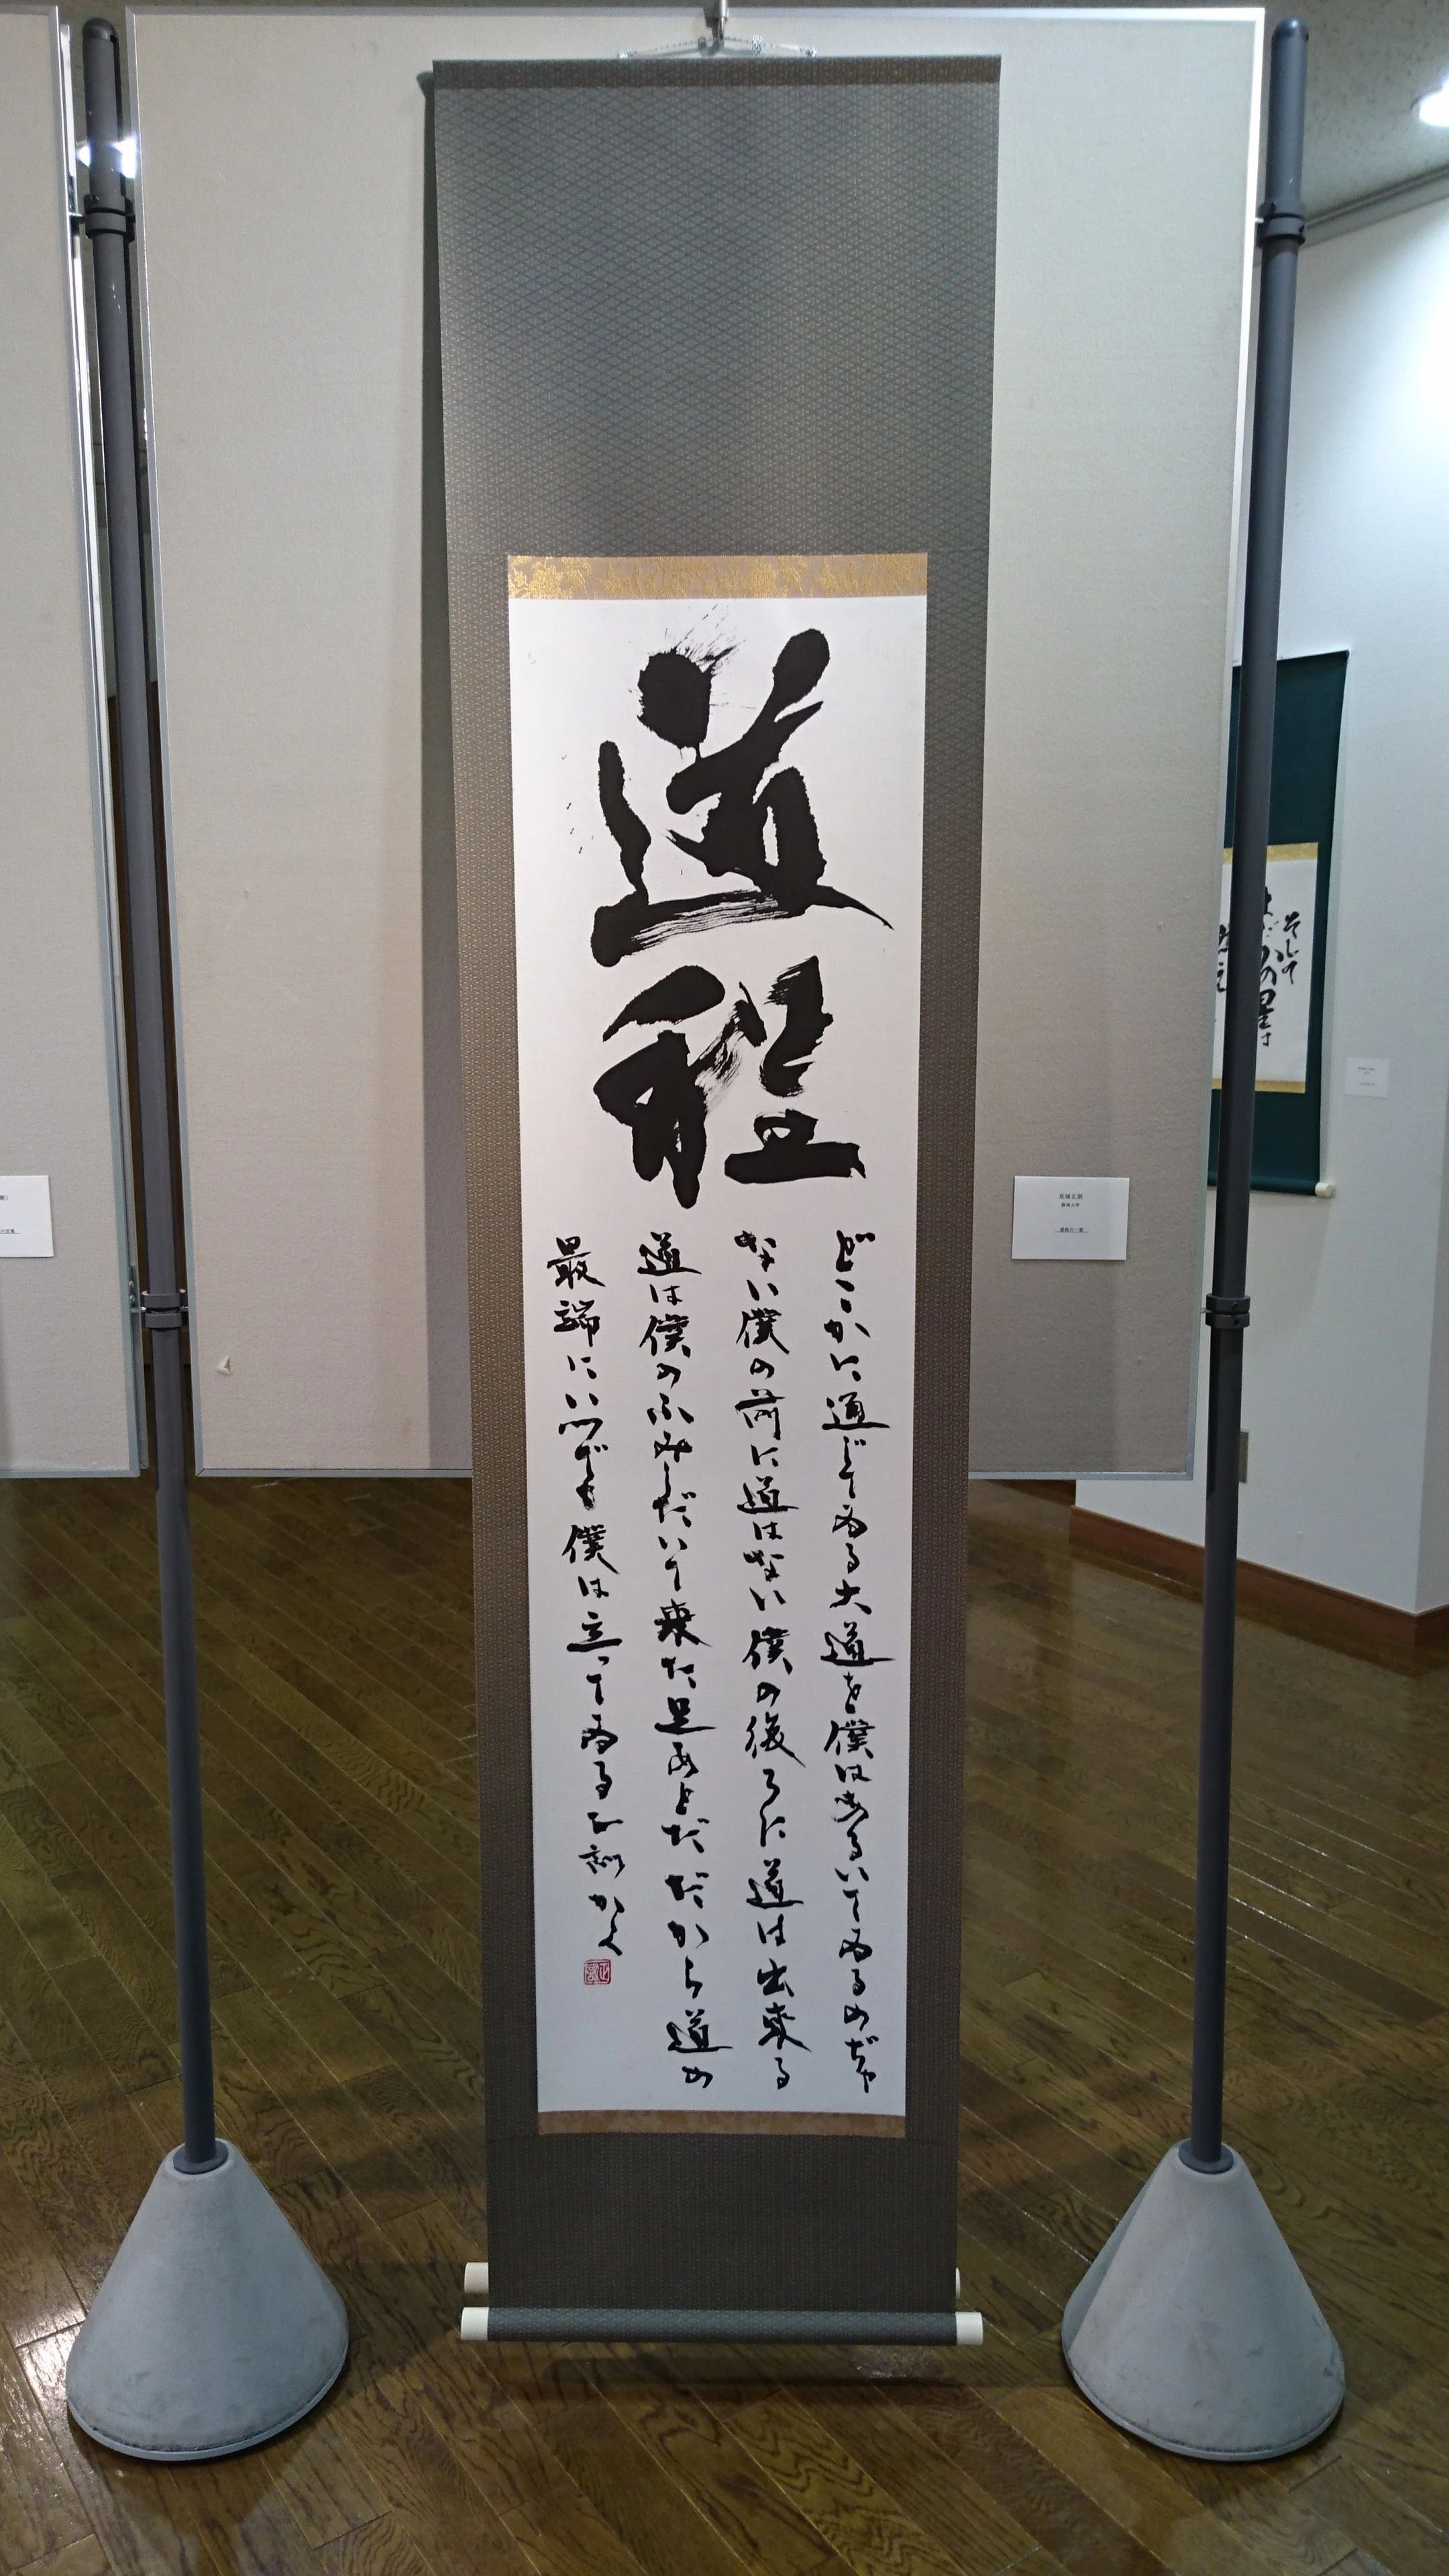 道程
どこかに通じてゐる大道を僕はあるいてゐるのぢや
ない僕の前に道はない僕の後ろに道は出来る
道は僕のふみしだいて来た足あとだだから道の
最端にいつでも僕は立つてゐる正訓かく
見城正訓
そして